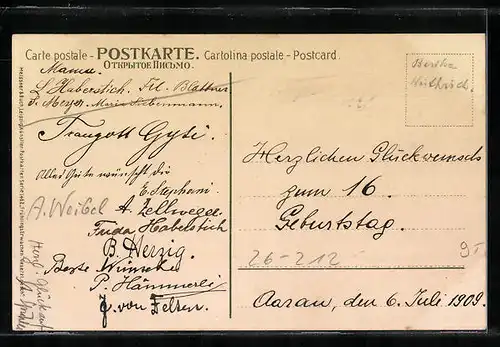 Carte postale – POSTKARTE. Cartolina postale – Postcard.
ОТКРЫТОЕ ПИСЬМО.
Mama.
S. Haberstich. Frl. Blattner
F. Meyer. Marie Liebermann.
Traugott Gysi.
Alles Gute wünscht dir
E. Stephani
A. Weibel A. Zellweger
Frida Haberstich
B. Herzig.
Beste Wünsche
P. Hämmerli
J. von Felten.
Herzl. Glückauf
Bertha
Herzlichen Glückwunsch
zum 16.
Geburtstag.
26-212
Aarau, den 6. Juli 1909.